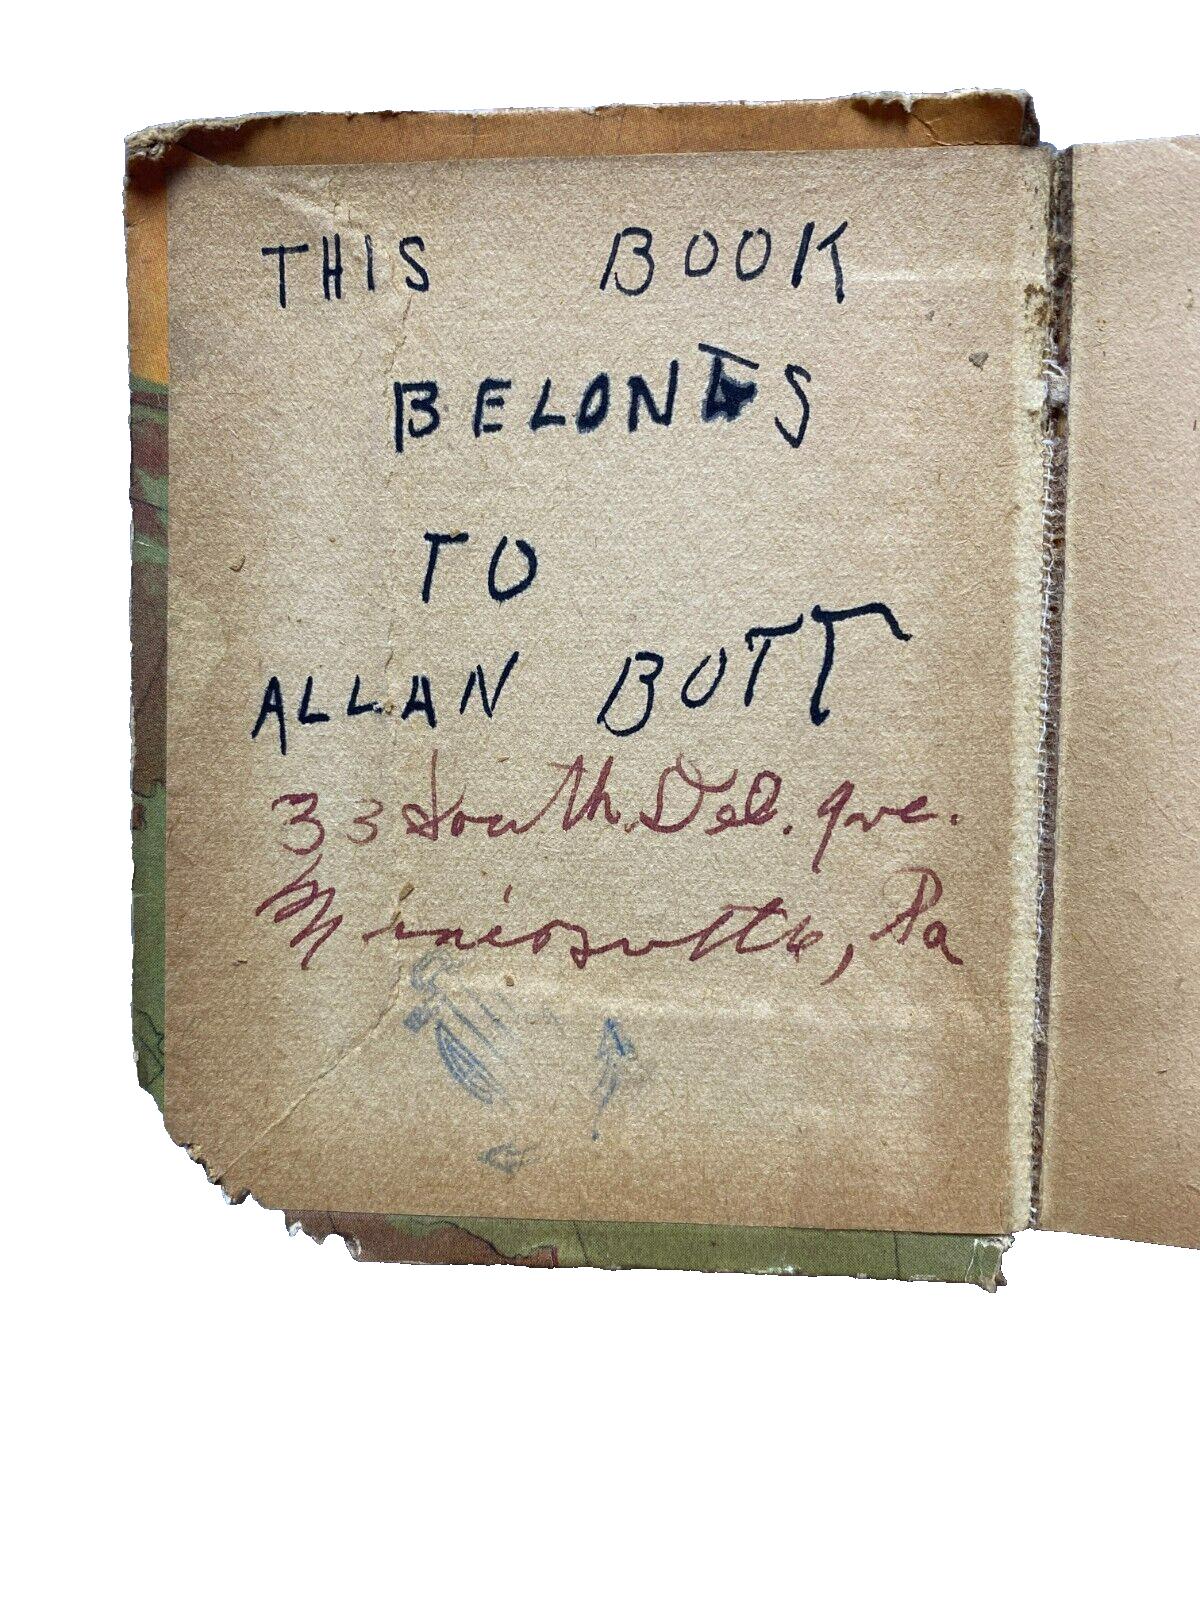 THIS BOOK
BELONGS
TO
ALLAN BOTT
33 South Del. Ave.
Minersville, Pa